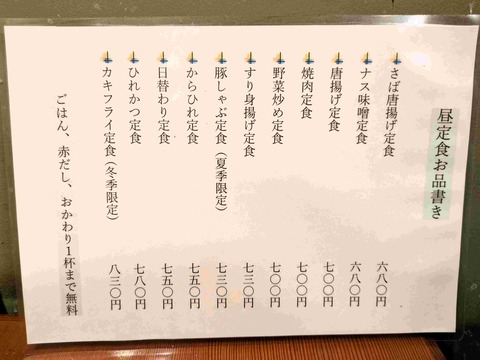 昼定食お品書き
さば唐揚げ定食 六八〇円
ナス味噌定食 六八〇円
唐揚げ定食 七〇〇円
焼肉定食 七〇〇円
野菜炒め定食 七〇〇円
すり身揚げ定食 七三〇円
豚しゃぶ定食(夏季限定) 七三〇円
からひれ定食 七五〇円
日替わり定食 七五〇円
ひれかつ定食 七八〇円
カキフライ定食(冬季限定) 八三〇円
ごはん、赤だし、おかわり1杯まで無料